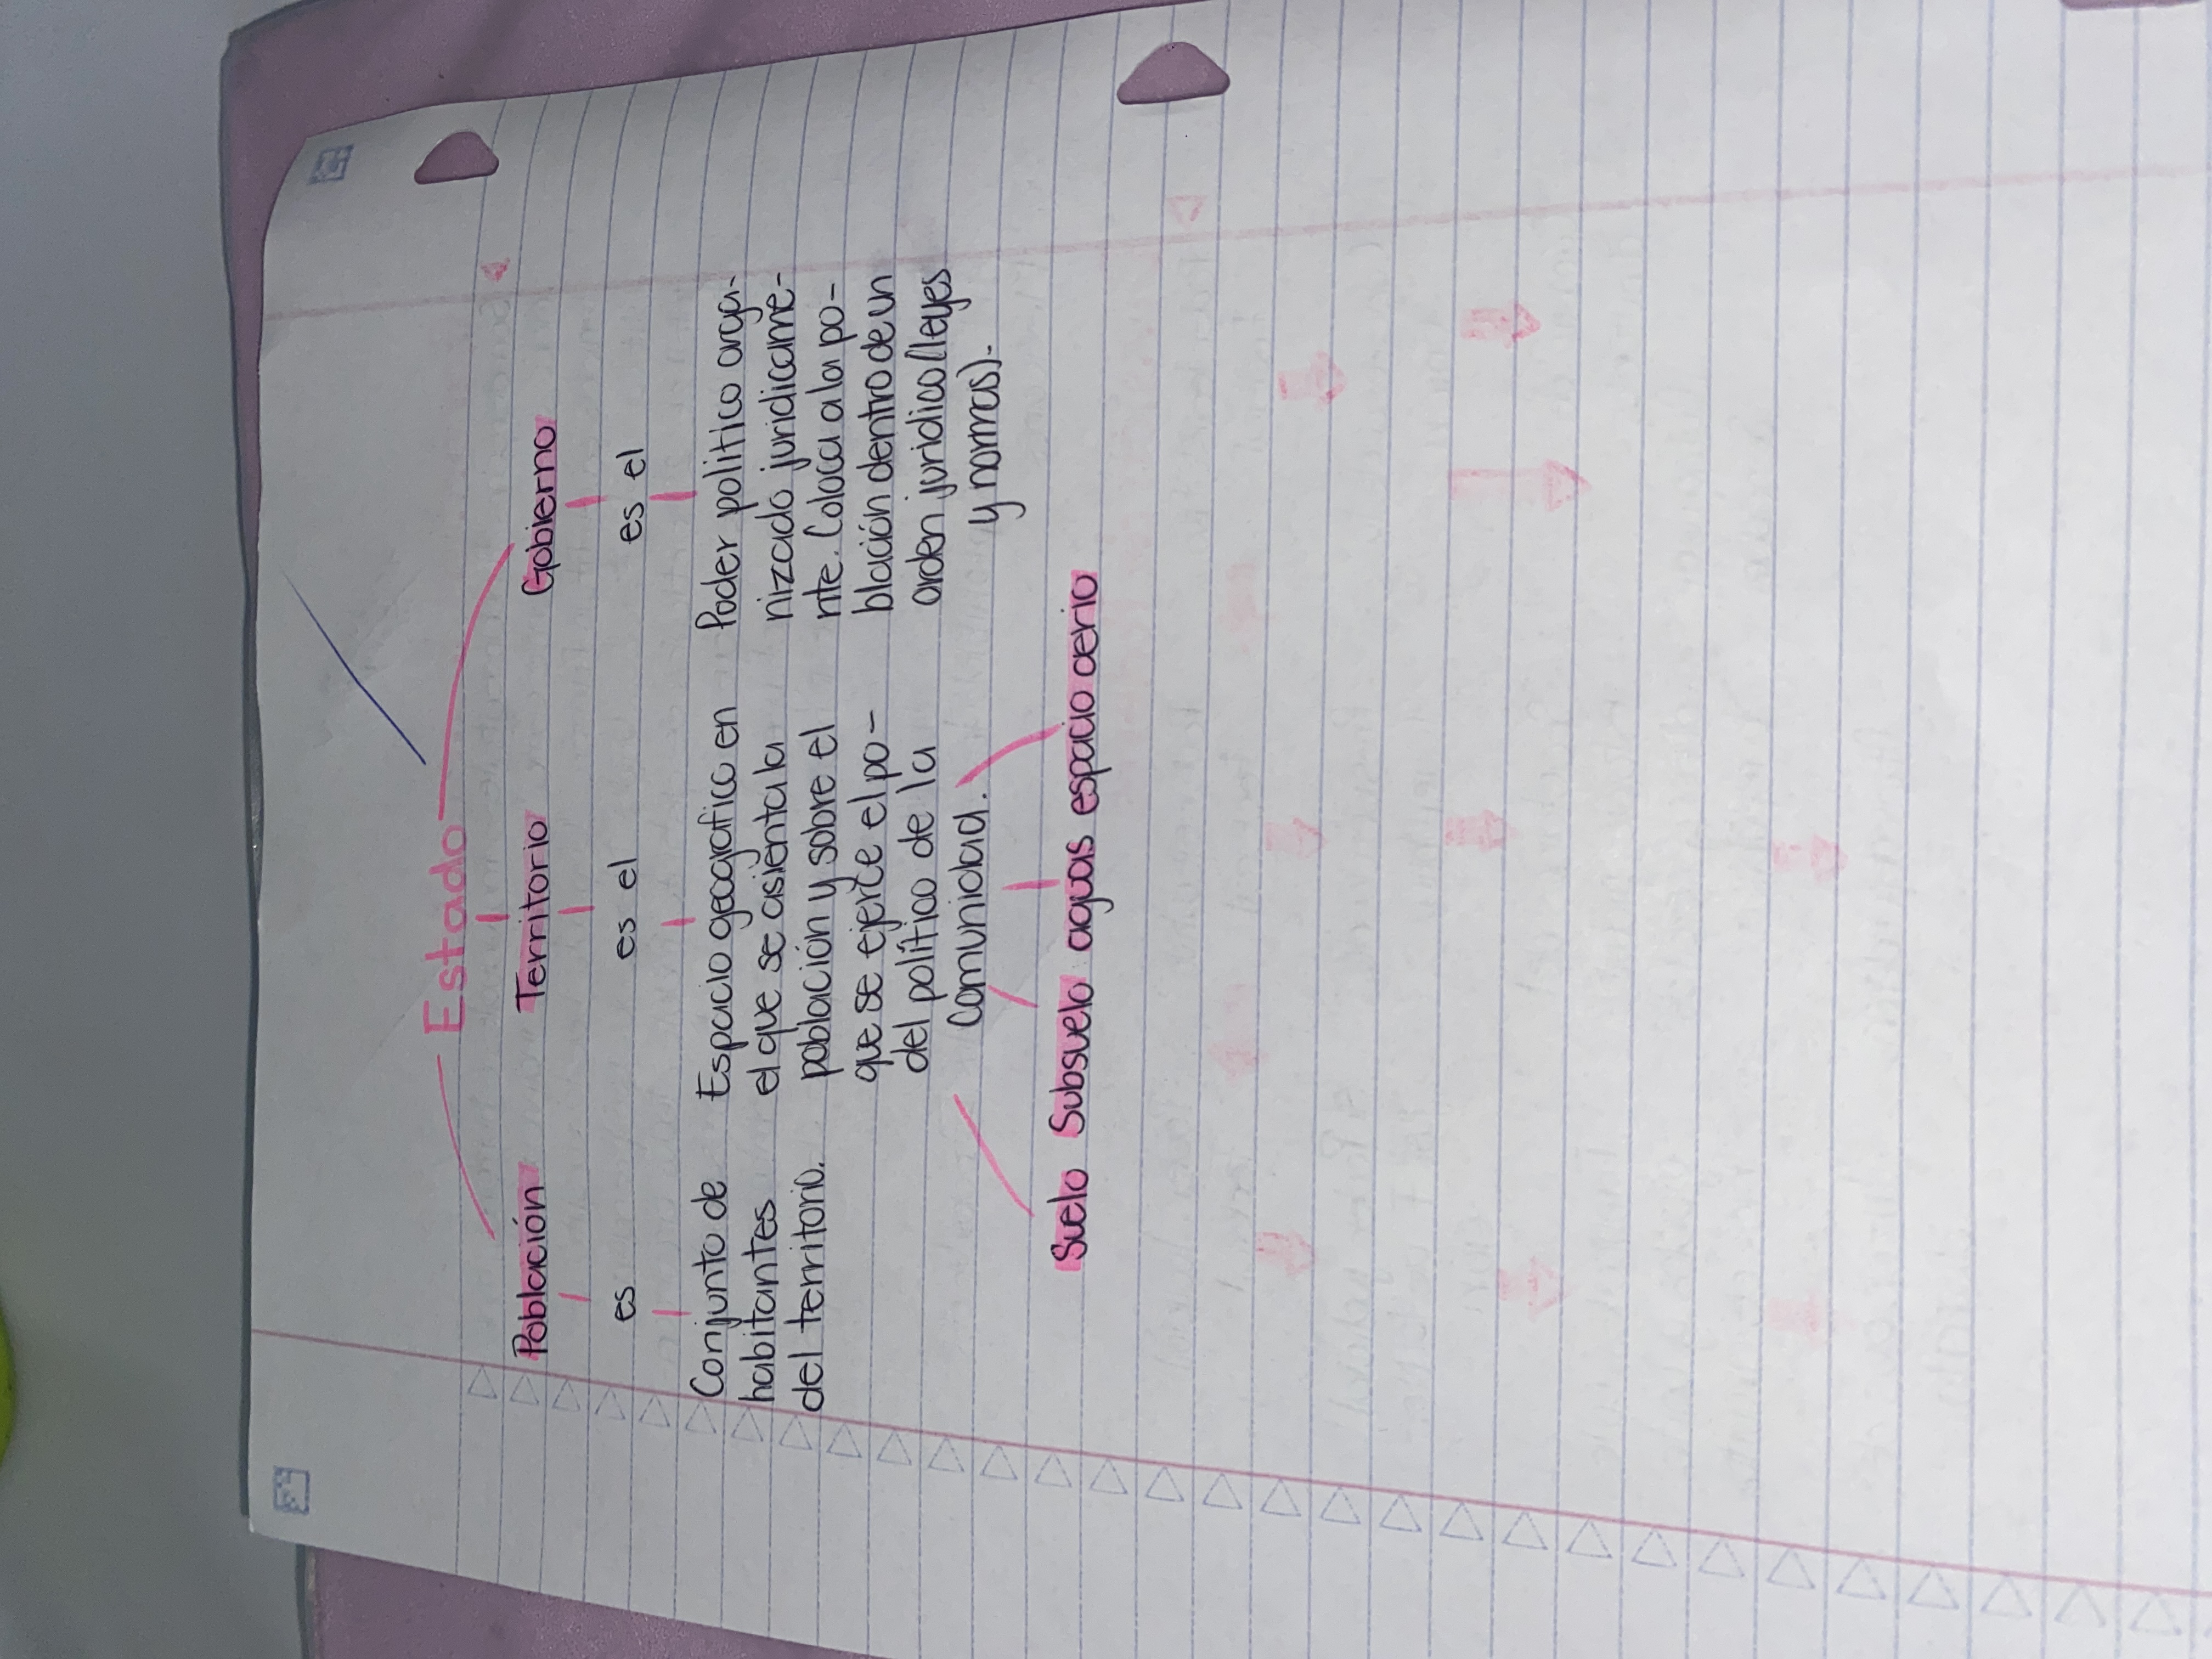 Estado
Población Territorio Gobierno
es es el es el
Conjunto de
habitantes
del territorio.
Espacio geografico en
el que se asienta la
población y sobre el
que se ejerce el po-
del político de la
Comunidad.
Poder politico orga-
nizado juridicame-
nte. Coloca a la po-
blación dentro de un
orden juridico (leyes
y normas).
Suelo Subsuelo aguas espacio aerio